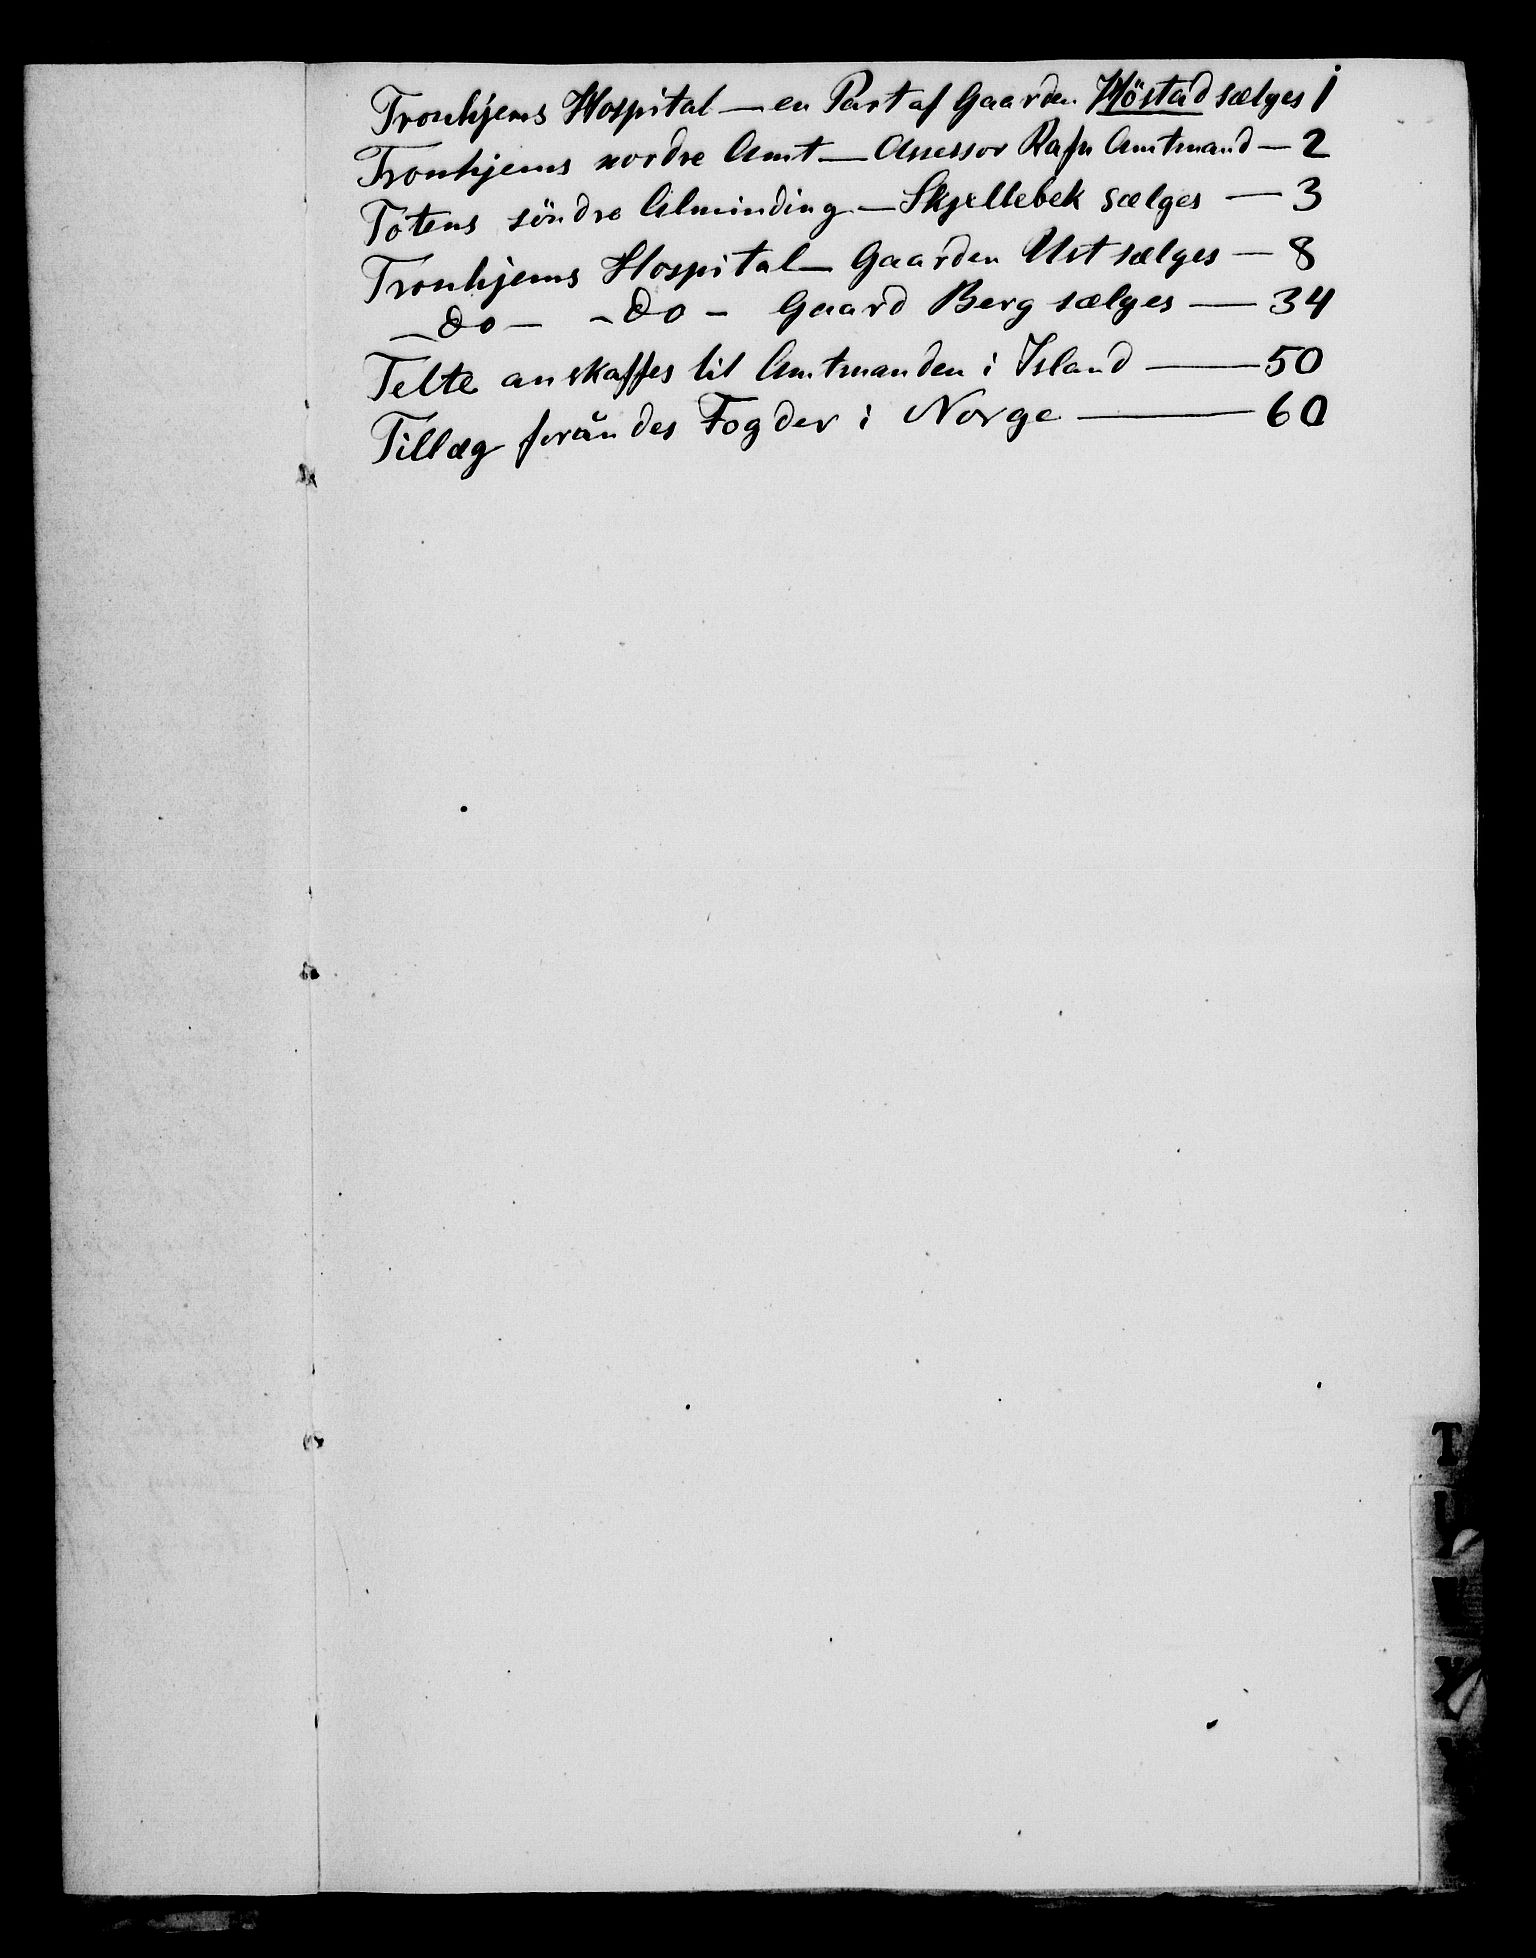 Tronhjems Hospital — en Part af Gaarden Höstad sælges 1
Tronhjems nordre Amt — Assessor Rafn Amtmand — 2
Totens söndre Alminding — Skjellebek sælges — 3
Tronhjems Hospital — Gaarden Ust sælges — 8
— do — - do - Gaard Berg sælges — 34
Telte anskaffes til Amtmanden i Island — 50
Tillæg forundes Fogder i Norge — 60
T